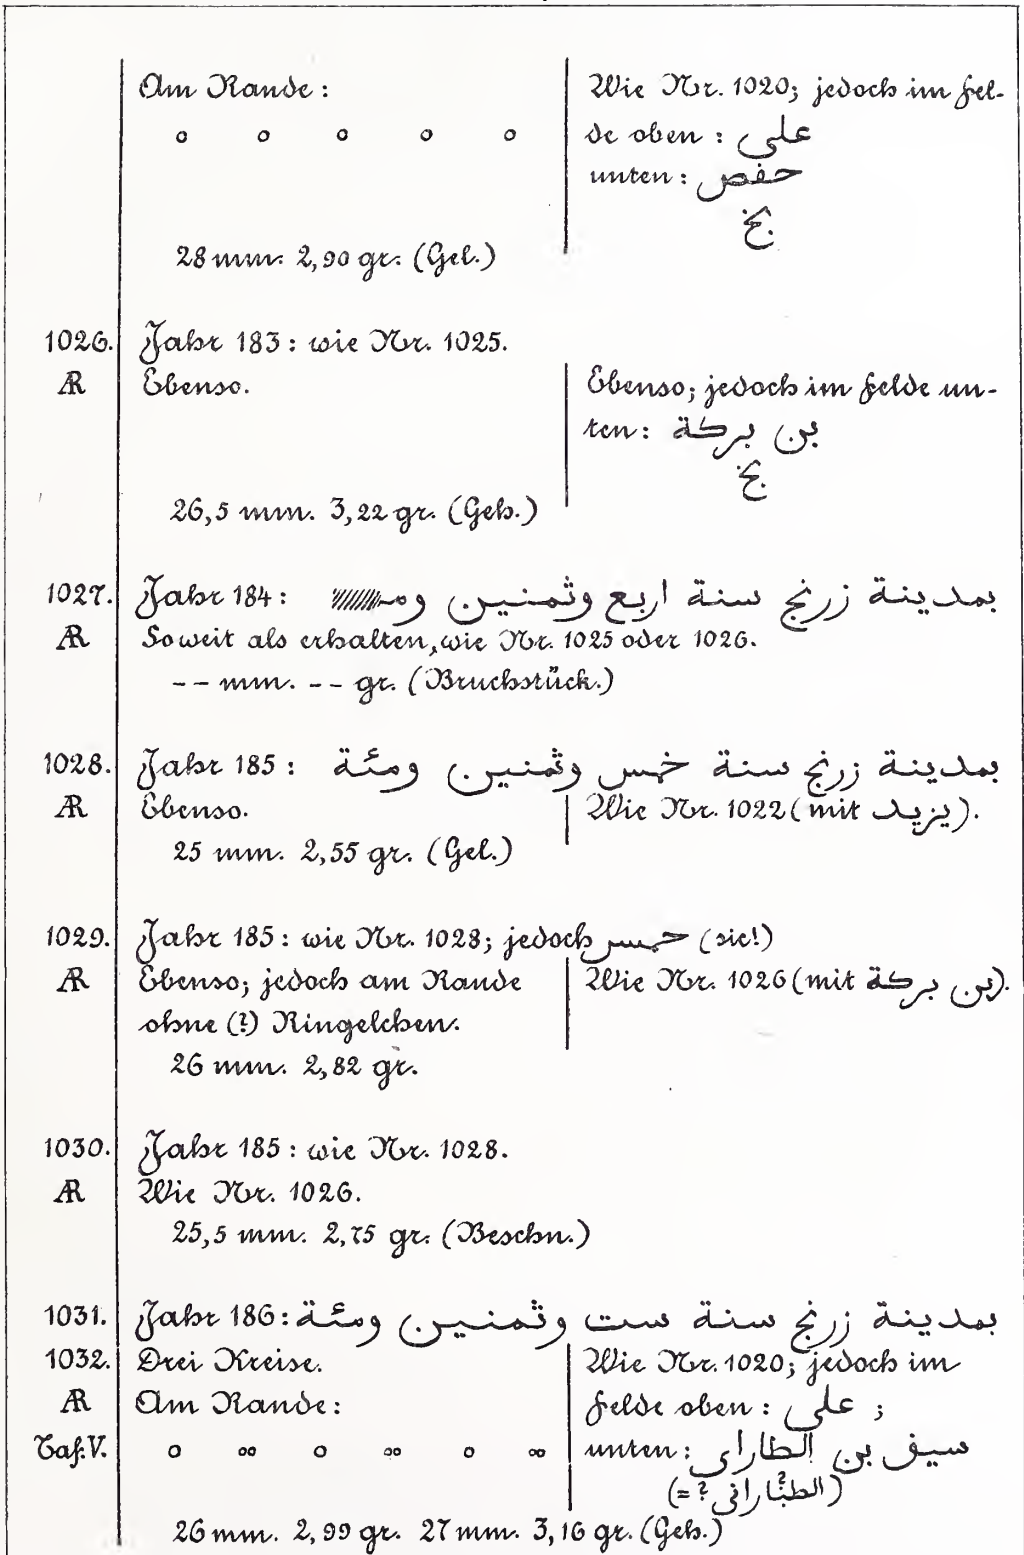 Am Rande:
Wie Nr. 1020; jedoch im Fel-
o o o o o
de oben : على
unten : حفص
بخ
28 mm. 2,90 gr. (Gel.)
1026. Jahr 183 : wie Nr. 1025.
AR Ebenso.
Ebenso; jedoch im Felde un-
ten : بن بركة
بخ
26,5 mm. 3,22 gr. (Geh.)
1027. Jahr 184 : بمدينة زرنج سنة اربع وثمنين ومـ
AR Soweit als erhalten, wie Nr. 1025 oder 1026.
-- mm. -- gr. (Bruchstück.)
1028. Jahr 185 : بمدينة زرنج سنة خمس وثمنين ومئة
AR Ebenso.
Wie Nr. 1022 (mit يزيد).
25 mm. 2,55 gr. (Gel.)
1029. Jahr 185 : wie Nr. 1028; jedoch حمسر (sic!)
AR Ebenso; jedoch am Rande
ohne (?) Ringelchen.
Wie Nr. 1026 (mit بن بركة).
26 mm. 2,82 gr.
1030. Jahr 185 : wie Nr. 1028.
AR Wie Nr. 1026.
25,5 mm. 2,75 gr. (Beschn.)
1031. Jahr 186 : بمدينة زرنج سنة ست وثمنين ومئة
1032. Drei Kreise.
Wie Nr. 1020; jedoch im
AR Am Rande :
Felde oben : على ;
Taf. V. o oo o oo o oo
unten : سيف بن الطاراى
(= ? الطبارانى)
26 mm. 2,99 gr. 27 mm. 3,16 gr. (Geh.)